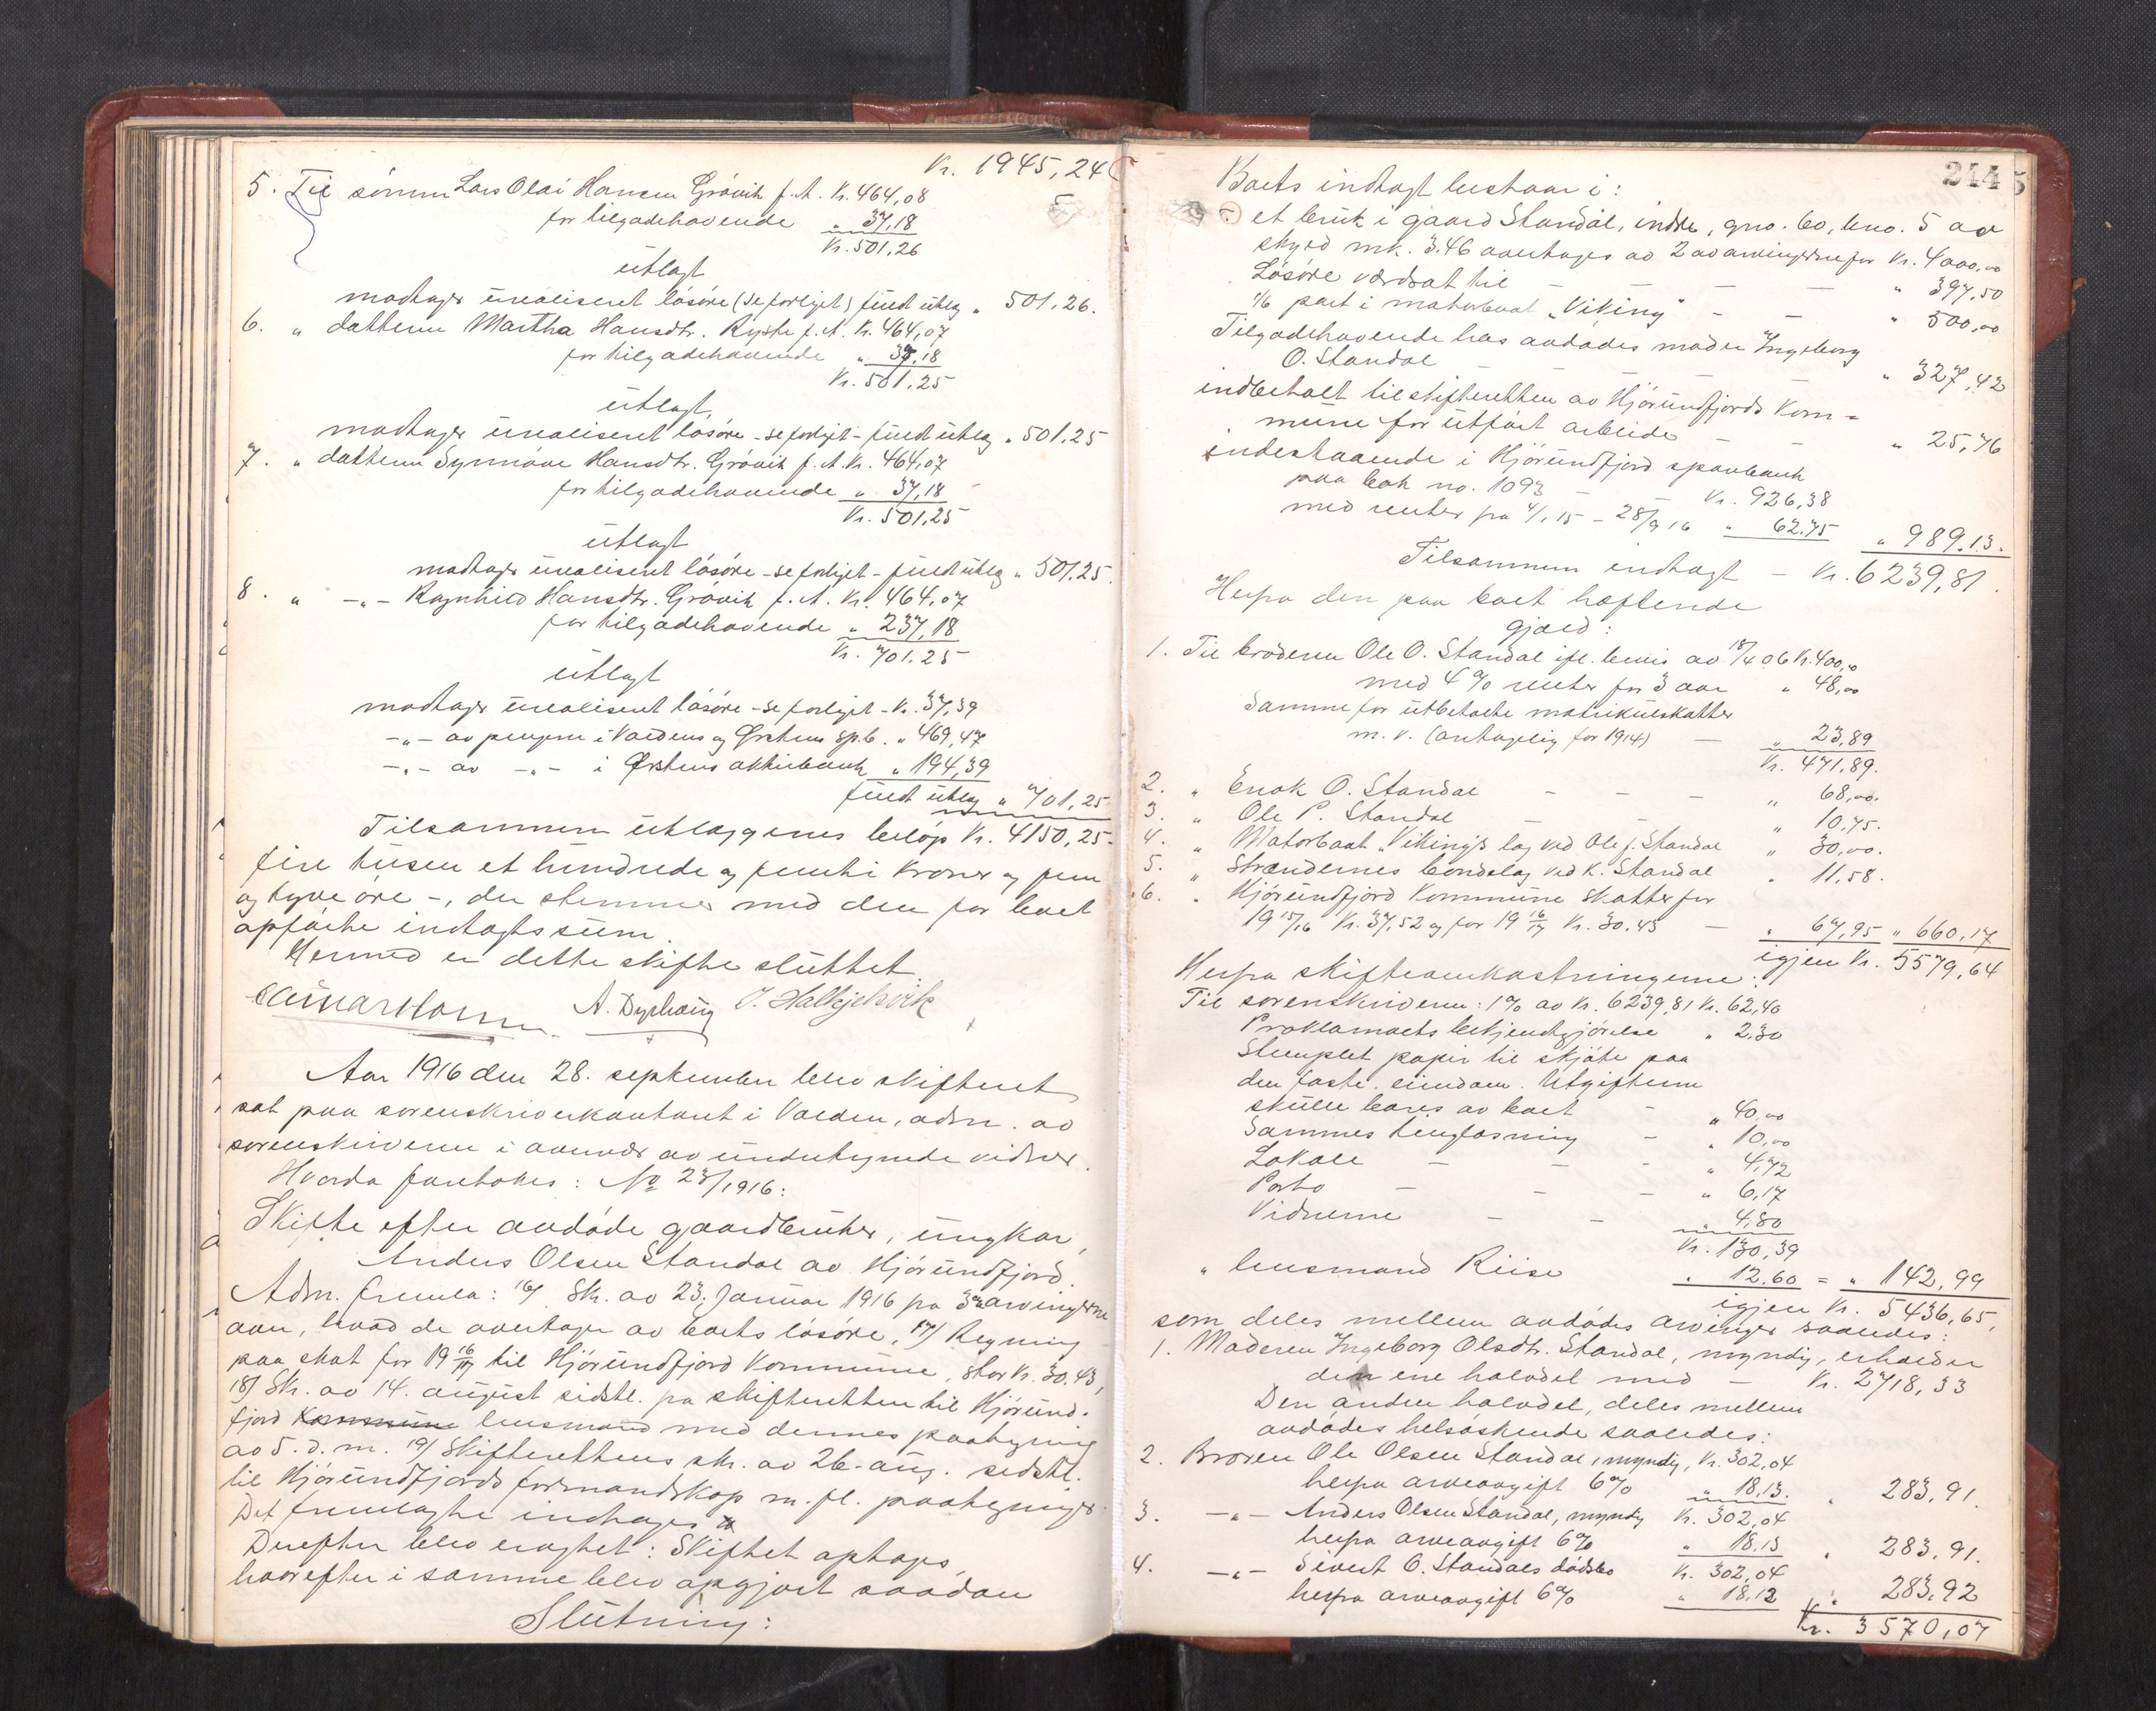 Kr. 1945,24
5. Til sønnen Lars Olai Hansen Grøvik f. A. Kr. 464,08
for tilgodehavende " 37,18
Kr. 501,26
utlagt
modtager urealiseret løsøre (se forliget) fuldt utlæg " 501,26.
6. " datteren Martha Hansdtr. Ryste f. A. Kr. 464,07
for tilgodehavende " 37,18
Kr. 501,25
utlagt,
modtager urealiseret løsøre - se forliget - fuldt utlæg " 501,25
7. " datteren Synnøve Hansdtr. Grøvik f. A. Kr. 464,07
for tilgodehavende " 37,18
Kr. 501,25
utlagt
modtager urealiseret løsøre - se forliget - fuldt utlæg " 501,25.
8. " -"- Ragnhild Hansdtr. Grøvik f. A. Kr. 464,07
for tilgodehavende " 237,18
Kr. 701,25
utlagt
modtager urealiseret løsøre - se forliget - Kr. 37,39
-"- av pengene i Voldens og Ørstens spb. " 469,47
-"- av -"- i Ørstens aktiebank " 194,39
fuldt utlæg " 701,25
Tilsammen utlæggenes beløp Kr. 4150,25 -
fire tusen et hundrede og femti kroner og fem
og tyve øre -, der stemmer med den for boet
opførte indtægtssum.
Hermed er dette skifte sluttet.
A. Dyrhaug J. Halkjelsvik
Aar 1916 den 28. september blev skifteret
sat paa sorenskriverkontoret i Volden, adm. av
sorenskriveren i overvær av undertegnede vidner.
Hvorda foretokes: No 23/1916:
Skifte efter avdøde gaardbruker, ungkar,
Anders Olsen Standal av Hjørundfjord.
Adm. fremla: 16/ Sk. av 23. januar 1916 fra 3 av arvingerne
over, hvad de overtager av boets løsøre, 17/ Regning
paa skat for 19 16/17 til Hjørundfjord kommune, stor Kr. 30.43,
18/ Sk. av 14. august sidstl. fra skifteretten til Hjørund-
fjord kommune lensmand med dennes paategning
av 5. d. m. 19/ Skifterettens sk. av 26. aug. sidstl.
til Hjørundfjords formandskap m. fl. paategninger.
Det fremlagte indtages
Derefter blev eragtet: Skiftet optages,
hvorefter i samme blev opgjort saadan
Slutning:
244
Boets indtægt bestaar i:
et bruk i gaard Standal, indre, gno. 60, bno. 5 av
skyld mk. 3.46 overtages av 2 av arvingerne for Kr. 4000,00
Løsøre værdsat til - - - " 397,50
1/6 part i motorbaat "Viking" - - " 500,00
Tilgodehavende hos avdødes moder Ingeborg
O. Standal - - - " 327,42
indbetalt til skifteretten av Hjørundfjords kom-
mune for utført arbeide - - " 25,76
indestaaende i Hjørundfjord sparebank
paa bok no. 1093 - Kr. 926,38
med renter fra 1/1 15 - 28/9 16 " 62.75 " 989.13.
Tilsammen indtægt - Kr. 6239,81.
Herfra den paa boet heftende
gjæld:
1. Til broderen Ole O. Standal ifl. bevis av 18/4 06 Kr. 400,00
med 4 % renter for 3 aar " 48,00
Samme for utbetalte matrikulskatter
m. v. (antagelig for 1914) - " 23,89
Kr. 471,89.
2. " Enok O. Standal - - - " 68,00.
3. " Ole P. Standal - " 10.75.
4. " Motorbaat "Viking"s lag ved Ole J. Standal " 30,00.
5. " Strændernes bondelag ved K. Standal " 11,58.
6. " Hjørundfjord kommune skatter for
19 15/16 Kr. 37,52 og for 19 16/17 Kr. 30.43 - " 67,95 " 660,17
igjen Kr. 5579,64
Herfra skifteomkostningerne:
Til sorenskriveren: 1 % av Kr. 6239,81 Kr. 62,40
Proklamaets bekjendtgjørelse " 2,30
Stemplet papir til skjøte paa
den faste eiendom. Utgifterne
skulle bæres av boet - " 40,00
Sammes tinglæsning - " 10,00
Lokale - - - " 4,72
Porto - - - " 6,17
Vidnerne - - " 4,80
Kr. 130,39
" lensmand Riise " 12.60 = " 142,99
igjen Kr. 5436,65,
som deles mellem avdødes arvinger saaledes:
1. Moderen Ingeborg Olsdtr. Standal, myndig, erholder
den ene halvdel med - Kr. 2718,33
Den anden halvdel, deles mellem
avdødes helsøskende saaledes:
2. Broren Ole Olsen Standal, myndig, Kr. 302,04
herfra arveavgift 6% " 18.13. " 283,91.
3. -"- Anders Olsen Standal, myndig Kr. 302,04
herfra arveavgift 6% " 18.13 " 283,91.
4. -"- Sivert O. Standals dødsbo Kr. 302,04
herfra arveavgift 6% " 18.12 " 283,92
Kr. 3570,07